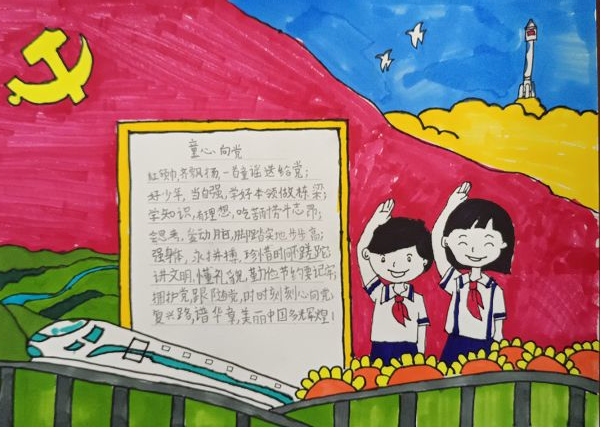 童心向党
红领巾,齐飘扬,一首童谣送给党;
好少年,当自强,学好本领做栋梁;
学知识,有理想,吃苦耐劳斗志昂;
会思考,金动脑,脚踏实地步步高;
强身体,永拼搏,珍惜时间不蹉跎;
讲文明,懂礼貌,勤俭节约要记牢;
拥护党,跟随党,时时刻刻心向党
复兴路,谱华章,美丽中国多辉煌!